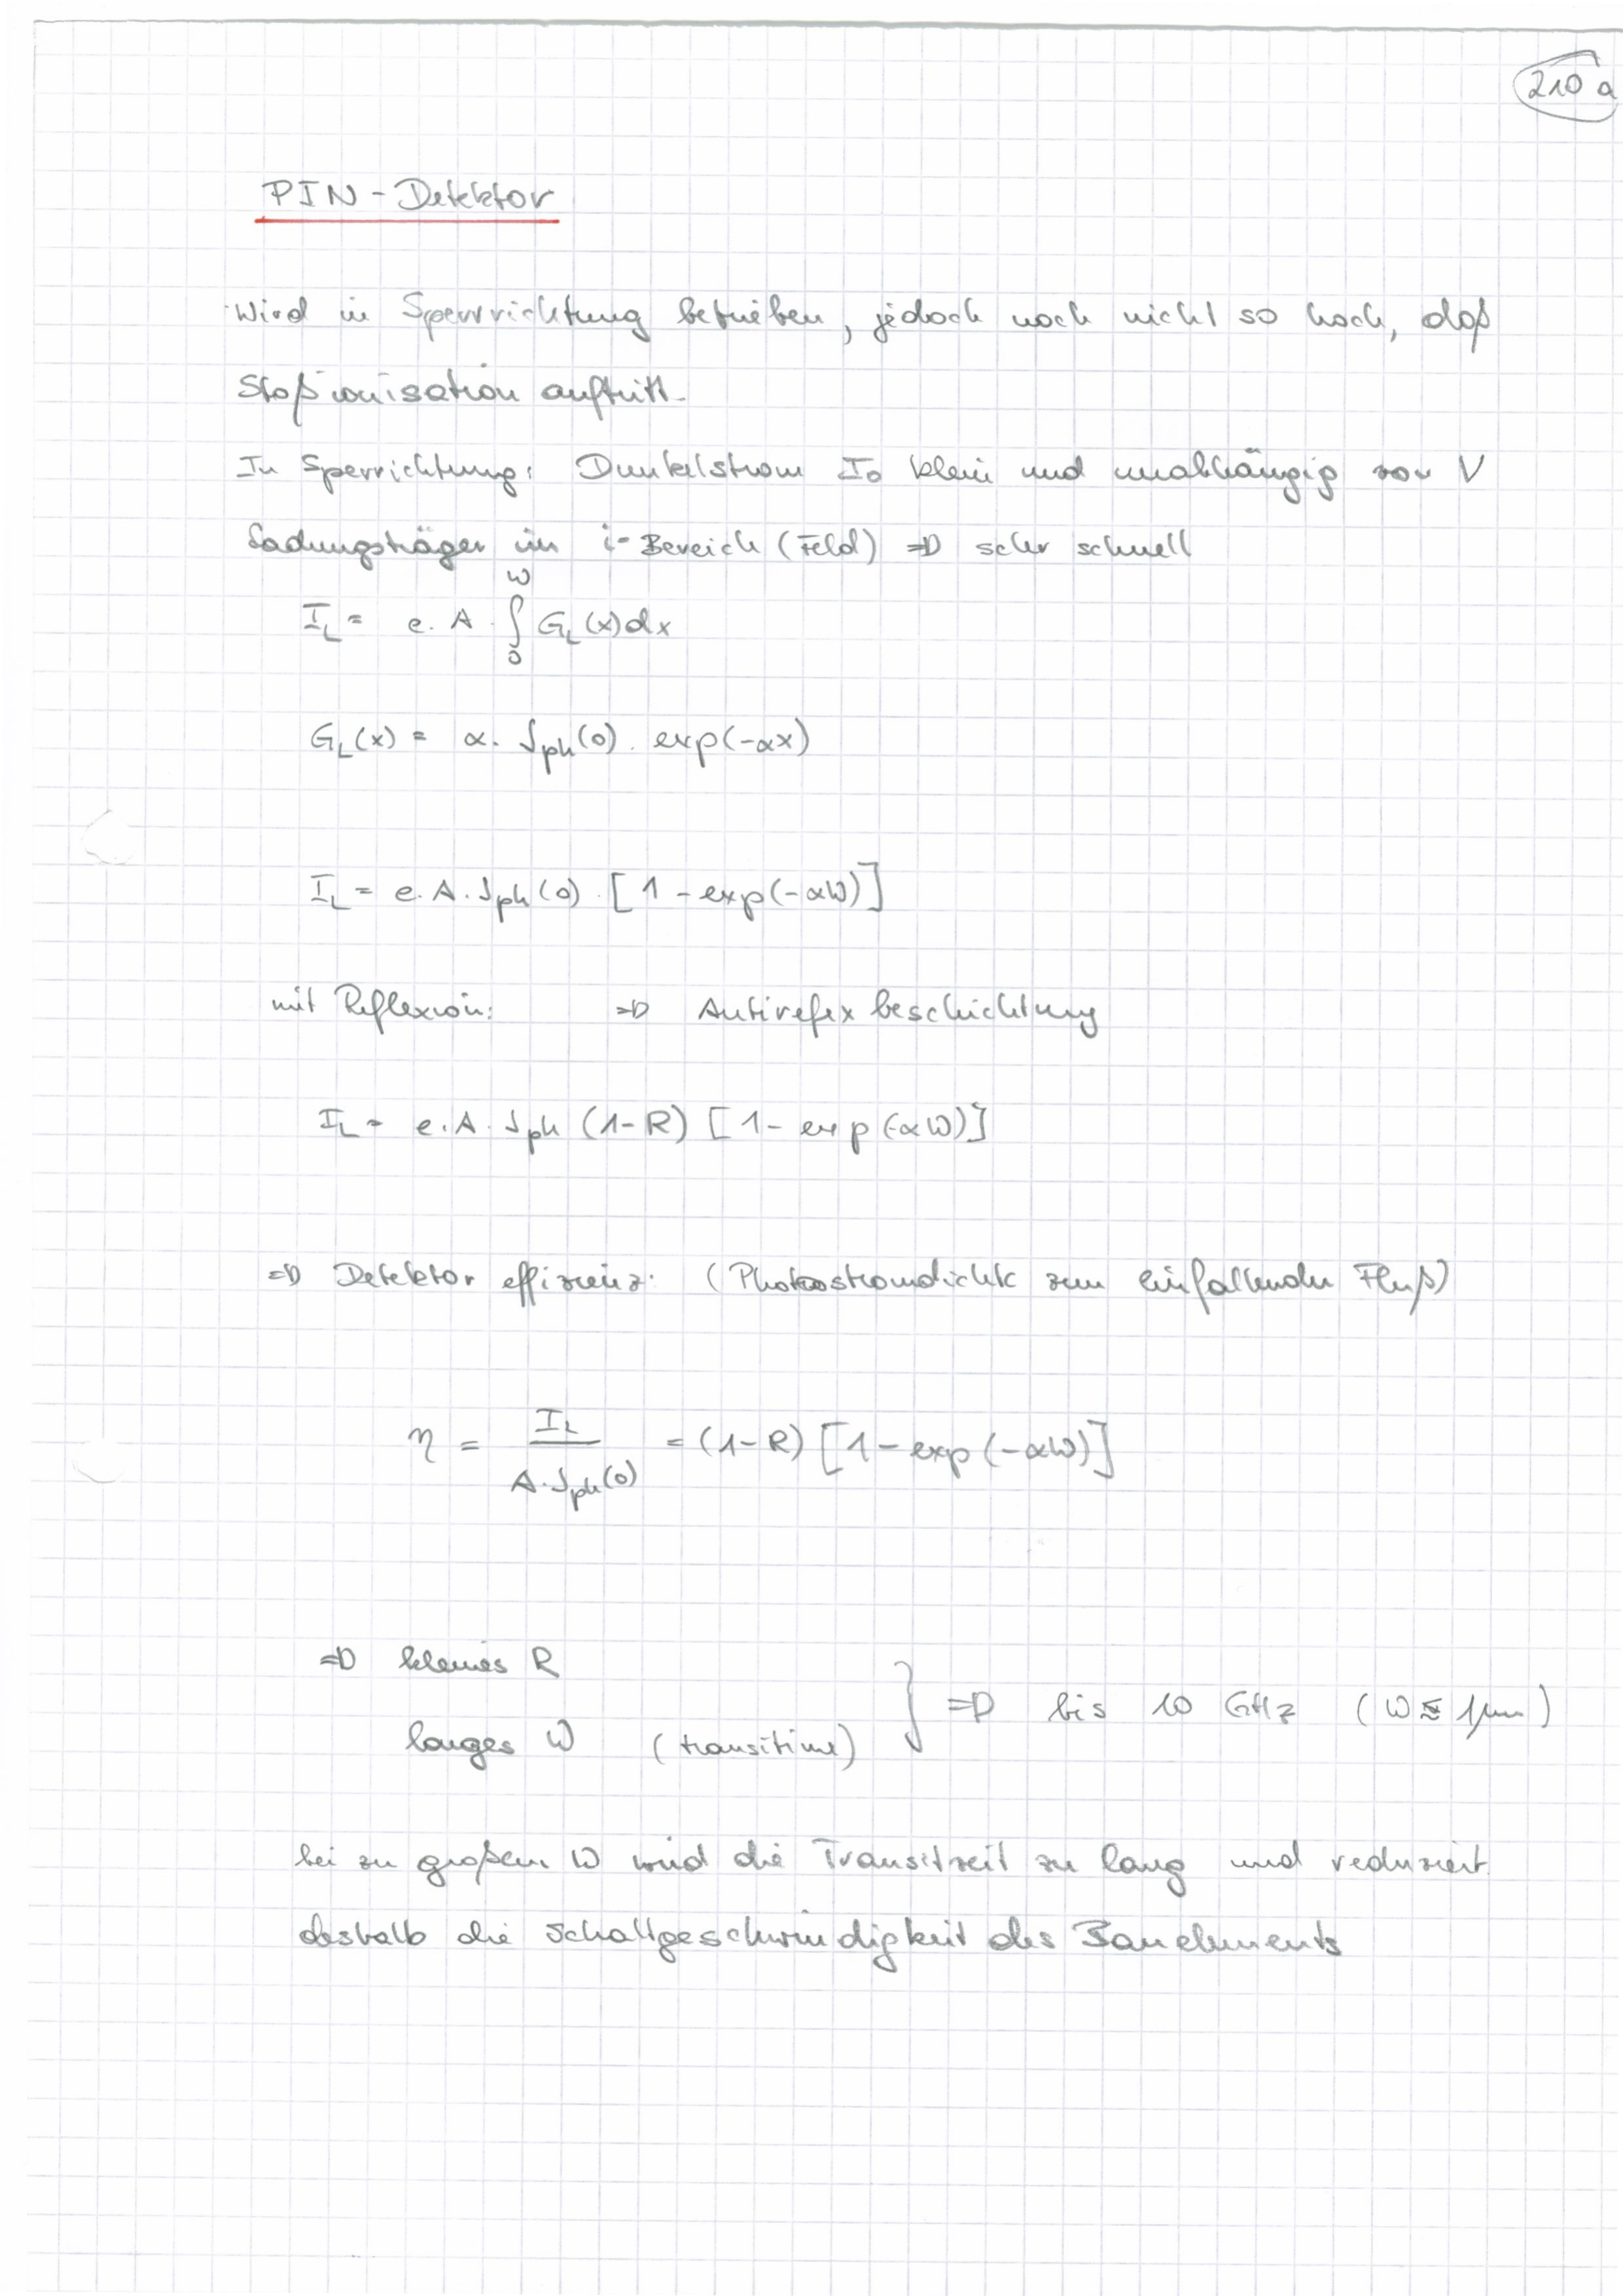 210 a
PIN - Detektor
Wird in Sperrrichtung betrieben, jedoch noch nicht so hoch, daß
Stoßionisation auftritt.
In Sperrichtung: Dunkelstrom I₀ klein und unabhängig von V
Ladungsträger im i-Bereich (Feld) ⇒ sehr schnell
I_L = e · A · ∫₀^W G_L(x) dx
G_L(x) = α · J_ph(0) · exp(-αx)
I_L = e · A · J_ph(0) · [1 - exp(-αW)]
mit Reflexion: ⇒ Antirefex beschichtung
I_L = e · A · J_ph (1-R) [1 - exp(-αW)]
⇒ Detektor effizienz: (Photostromdichte zum einfallenden Fluß)
η = I_L / A · J_ph(0) = (1-R) [1 - exp(-αW)]
⇒ kleines R
langes W (transitime) } ⇒ bis 10 GHz (W ≲ 1µm)
bei zu großem W wird die Transitzeit zu lang und reduziert
deshalb die Schaltgeschwindigkeit des Bauelements